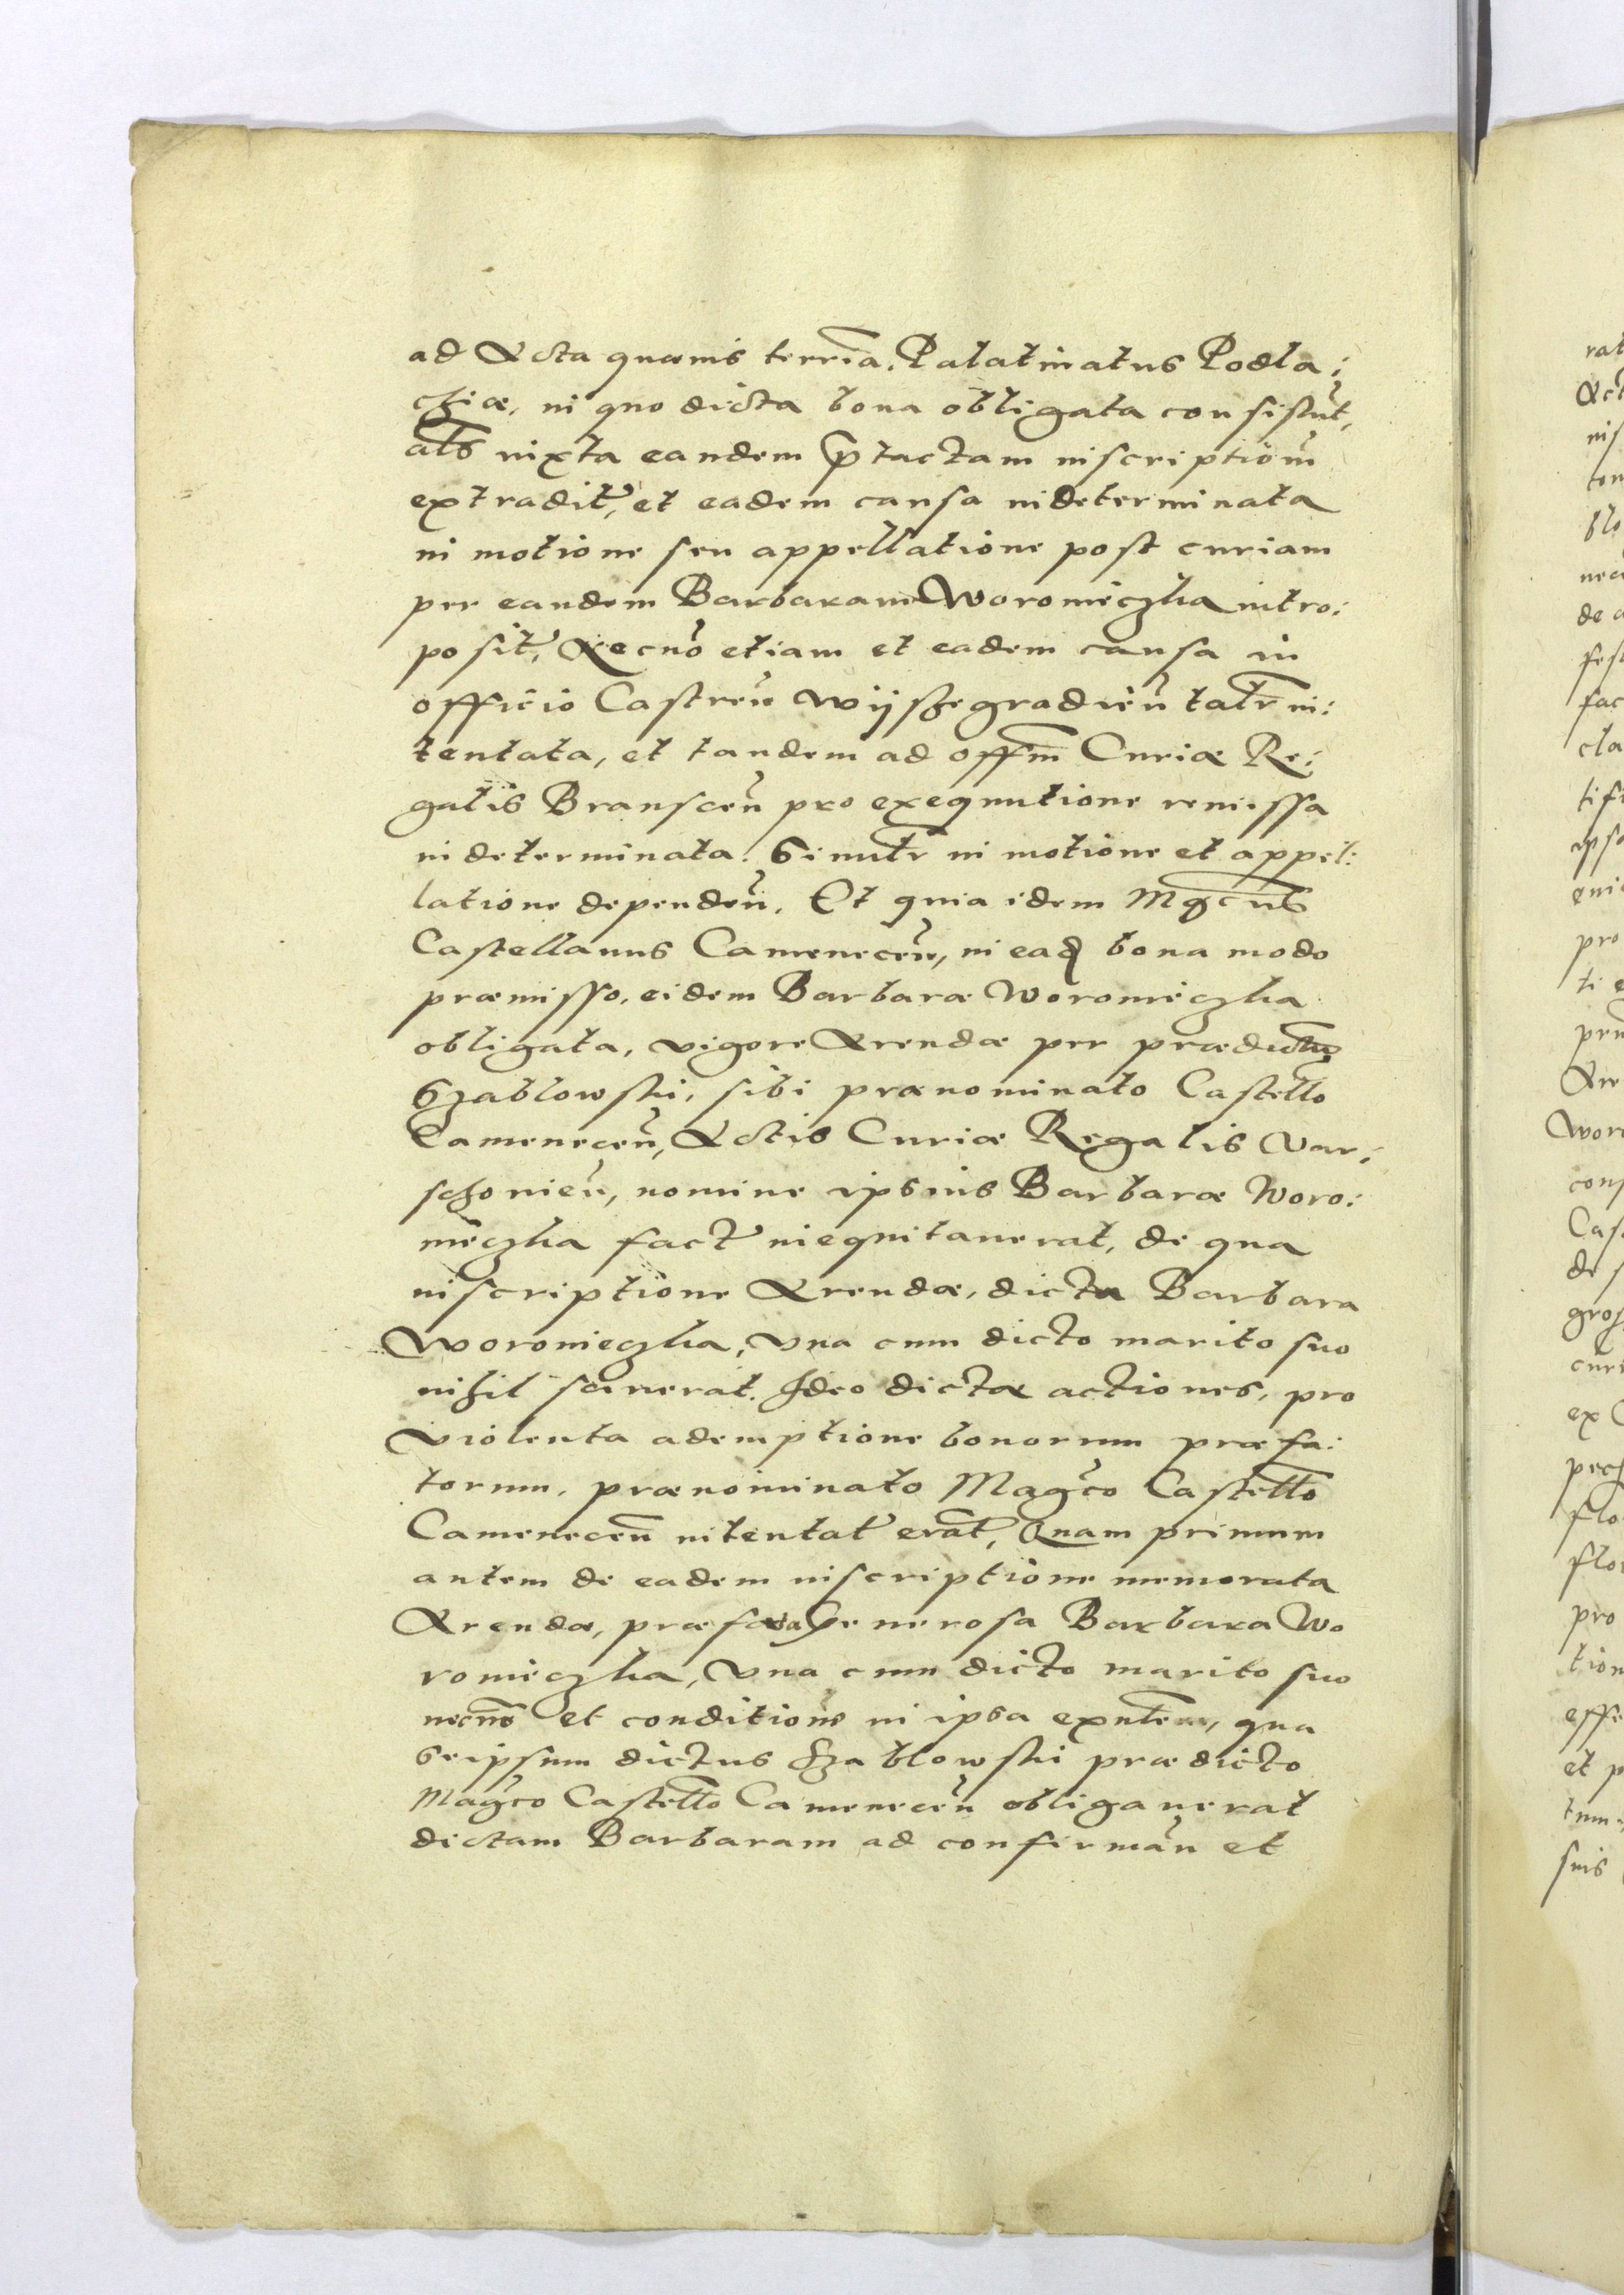 ad Acta quævis terrīa. Palatinatus Podla:
chiæ, in quo dicta bona obligata consistūt,
als iuxta eandem p̄tactam inscriptionē
extradit, et eadem causa indeterminata
in motione seu appellatione post curiam
per eandem Barbaram Woroniečzka intro:
posit, Necnō etiam et eadem causa in
officio Castren̄ Wijschegradien̄ talr in:
tentata, et tandem ad offm Curiæ Re:
galis Branscen̄ pro exequutione remissa
indeterminata. Simlr in motione et appel:
latione dependen̄. Et quia idem Mgcus
Castellanus Camenecen̄, in eadꝫ bona modo
præmisso, eidem Barbaræ Woronieczka
obligata, vigore Arendæ per prædictū
Szablowski, sibi prænominato Castello
Camenecen̄, Actis Curiæ Regalis Var:
schovien̄, nomine ipsius Barbaræ Woro:
nieczka fact inequitaverat, de qua
inscriptione Arendæ, dicta Barbara
Woronieczka, una cum dicto marito suo
nihil sciverat. Ideo dictæ actiones, pro
violenta ademptione bonorum præfa:
torum, prænominato Magco Castello
Camenecen̄ intentat erāt, Quam primum
autem de eadem inscriptione memorata
Arendæ, præfata Generosa Barbara Wo
ronieczka, una cum dicto marito suo
necnō et conditione in ipsa exn̄tem, qua
seipsum dictus Szablowski prædicto
Magco Castello Camenecen̄ obligaverat
dictam Barbaram ad confirman̄ et